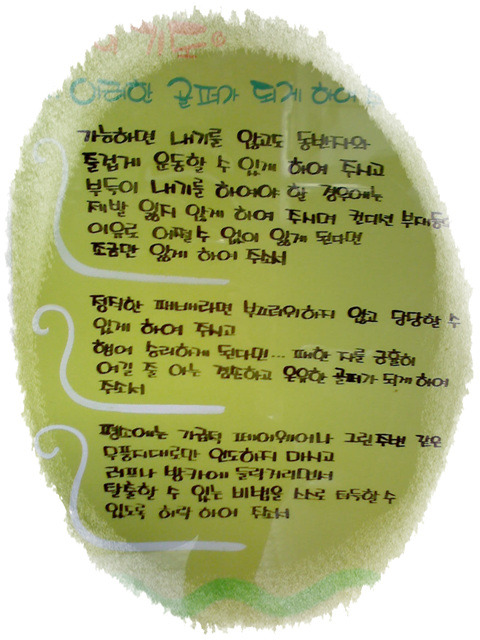 기도
이러한 골퍼가 되게 하여
가능하면 내기를 않고도 동반자와
즐겁게 운동할 수 있게 하여 주시고
부득이 내기를 하여야 할 경우에는
제발 잃지 않게 하여 주시며 컨디션 부대등
이유로 어쩔수 없이 잃게 된다면
조금만 잃게 하여 주소서
정직한 패배라면 부끄러워하지 않고 당당할 수
있게 하여 주시고
행여 승리하게 된다면... 패한 자를 긍휼히
여길 줄 아는 겸손하고 온유한 골퍼가 되게 하여
주소서
평소에는 가급적 페어웨이나 그린주변 같은
무풍지대로만 인도하지 마시고
러프나 방카에 들락거리면서
탈출할 수 있는 비법을 스스로 터득할 수
있도록 허락 하여 주소서